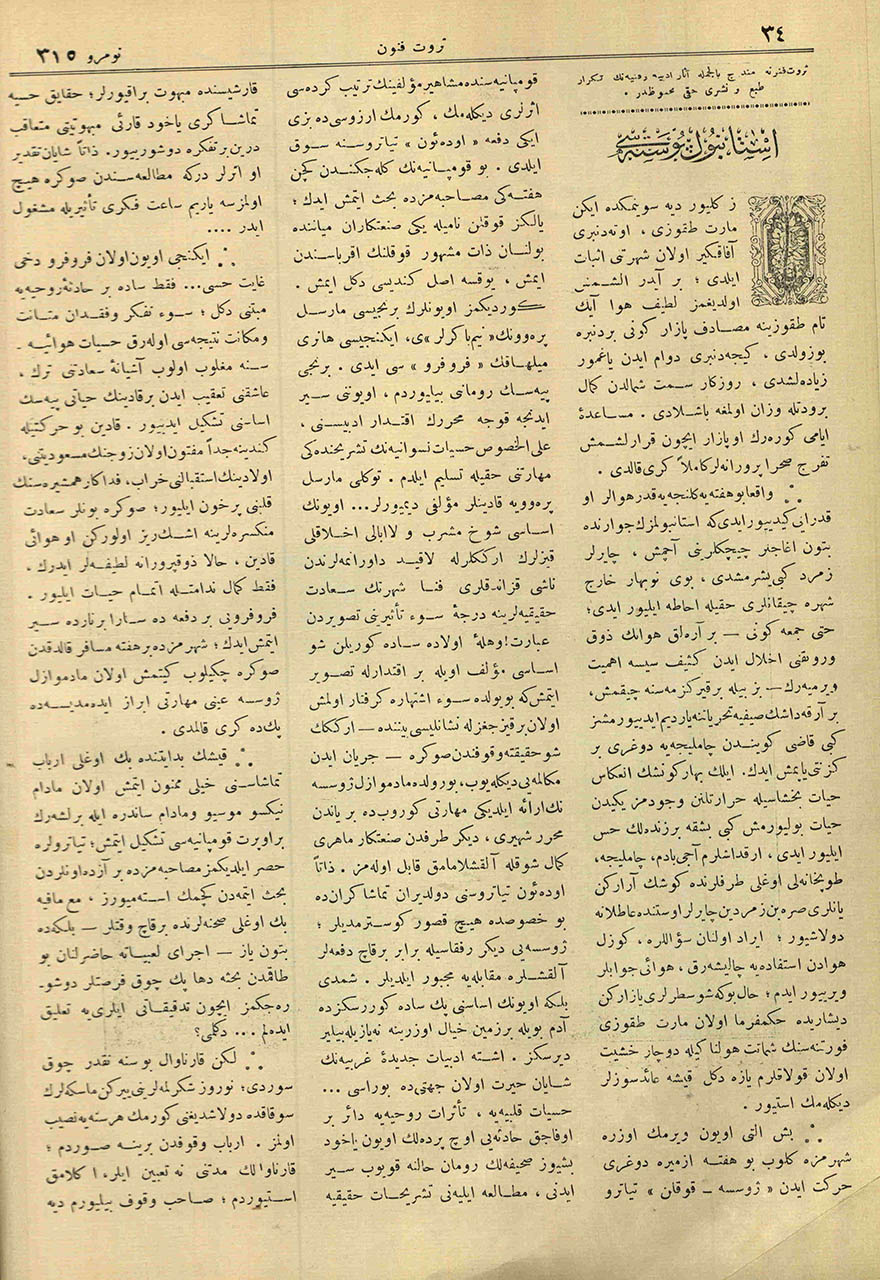 ٣٤
ثروت فنون
نومرو ٣١٥
ثروت فنونه مندرج بالجمله آثار ادبیه وفنیه‌نك تكرار
طبع و نشری حقی محفوظدر .
استانبول پوسته‌سی
ز كلیور دیه سوینمكده ایكن
مارت طقوزی ، اوته‌دنبری
آفاقكیر اولان شهرتنی اثبات
ایلدی ؛ بر آیدر الشمش
اولدیغمز لطیف هوا آیك
تام طقوزینه مصادف پازار كونی بردنبره
بوزولدی ، كیجه‌دنبری دوام ایدن یاغمور
زیاده‌لشدی ، روزكار سمت شمالدن كمال
برودتله وزان اولمغه باشلادی . مساعدهٔ
ایامی كوره‌رك او پازار ایچون قرارلشمش
تفرج صحرا پرورانه‌لر كاملاً كری قالدی .
∴ واقعا بو هفته‌یه كلنجه‌یه قدر هوالر او
قدر ایی كیدییور ایدی كه استانبولمزك جوارنده
بتون اغاجلر چیچكلرینی آچمش ، چایرلر
زمرد كبی یشرمشدی ، بوی نوبهار خارج
شهره چیقانلری حقیله احاطه ایلیور ایدی ؛
حتی جمعه كونی — بر آره‌لق هوانك ذوق
ورونقنی اخلال ایدن كثیف سیسه اهمیت
ویرمیه‌رك — بز بیله بر قیر كزمه‌سنه چیقمش،
بر آرقه‌داشك صیفیه تحریاتنه یاردیم ایدییور مشز
كبی قاضی كویندن چاملیجه‌یه دوغری بر
كزنتی یاپمش ایدك. ایلك بهار كونشك انعكاس
حیات بخشاسیله حرارتلنن وجودمز یكیدن
حیات بولیورمش كبی بشقه بر زنده‌لك حس
ایلیور ایدی ، ارقداشلرم آجی بادم، چاملیجه،
طوپخانه‌لی اوغلی طرفلرنده كوشك آراركن
یانلری صره بن زمردین چایرلر اوستنده عاطلانه
دولاشیور ؛ ایراد اولنان سؤاللره، كوزل
هوادن استفاده‌یه چالیشه‌رق ، هوائی جوابلر
ویرییور ایدم ؛ حال بوكه شو سطرلری یازاركن
دیشاریده حكمفرما اولان مارت طقوزی
فورتنه‌سنك شماتت هولنا كیله دوچار خشیت
اولان قولاقلرم یازه دكل قیشه عائد سوزلر
دیكله‌مك استیور .
∴ بش التی اویون ویرمك اوزره
شهرمزه كلوب بو هفته ازمیره دوغری
حركت ایدن « ژوسسه - قوقلن » تیاترو
قومپانیه‌سنده مشاهیر مؤلفینك ترتیب كرده‌سی
اثرلری دیكله‌مك ، كورمك ارزوسی ده بزی
ایكی دفعه « اوده‌ئون » تیاتروسنه سوق
ایلدی . بو قومپانیه‌نك كله جكندن كچن
هفته‌كی مصاحبه‌مزده بحث ایتمش ایدك ؛
یالكز قوقلن نامیله یكی صنعتكاران میاننده
بولنان ذات مشهور قوقلنك اقرباسندن
ایمش ، یوقسه اصل كندیسی دكل ایمش .
كوردیكمز اویونلرك برنجیسی مارسل
پره‌وونك «نیم باكرلر»ی، ایكنجیسی هانری
میلهاقك « فروفرو » سی ایدی . برنجی
پیه‌سك رومانی بیلیوردم ، اویوننی سیر
ایدنجه قوجه محررك اقتدار ادبیسنی ،
علی‌الخصوص حسیات نسوانیه‌نك تشریحنده‌كی
مهارتنی حقیله تسلیم ایلدم . توكلی مارسل
پره‌وویه قادینلر مؤلفی دیمیورلر... اویونك
اساسی شوخ مشرب و لاابالی اخلاقلی
قیزلرك ارككلرله لاقید داورانمه‌لرندن
ناشی قزاندقلری فنا شهرتك سعادت
حقیقیه‌لرینه درجهٔ سوء تأثیرینی تصویردن
عبارت! وهلهٔ اولاده ساده كوریلن شو
اساسی مؤلف اویله بر اقتدارله تصویر
ایتمش كه بو یولده سوء اشتهاره كرفتار اولمش
اولان بر قیزجغزله نشانلیسی بیننده — اركك
شو حقیقته وقوفندن صوكره — جریان ایدن
مكالمه‌یی دیكله‌یوب، بو رولده مادموازل ژوسسه
نك ارائه ایلدیكی مهارتی كوروب ده بر یاندن
محرر شهیری ، دیكر طرفدن صنعتكار ماهری
كمال شوقله آلقشلامامق قابل اوله‌مز . ذاتاً
اوده‌ئون تیاتروسنی دولدیران تماشاكران ده
بو خصوصده هیچ قصور كوسترمدیلر ؛
ژوسسه‌یی دیكر رفقاسیله برابر برقاچ دفعه‌لر
آلقشلره مقابله‌یه مجبور ایلدیلر . شمدی
بلكه اویونك اساسنی پك ساده كوررسكزده
آدم بویله بر زمین خیال اوزرینه نه یازیله‌بیلیر
دیرسكز . اشته ادبیات جدیدهٔ غربیه‌نك
شایان حیرت اولان جهتی ده بوراسی ...
حسیات قلبیه‌یه ، تأثرات روحیه‌یه دائر بر
اوفاجق حادثه‌یی اوچ پرده‌لك اویون یاخود
بشیوز صحیفه‌لك رومان حالنه قویوب سیر
ایدنی ، مطالعه ایلیه‌نی تشریحات حقیقیه
قارشیسنده مبهوت براقیورلر ؛ حقایق حسیه
تماشاكری یاخود قارئی مبهوتیتی متعاقب
درین بر تفكره دوشورییور . ذاتاً شایان تقدیر
او اثرلر دركه مطالعه‌سندن صوكره هیچ
اولمزسه یاریم ساعت فكری تأثیریله مشغول
ایدر ....
∴ ایكنجی اویون اولان فروفرو دخی
غایت حسی... فقط ساده بر حادثهٔ روحیه‌یه
مبتنی دكل ؛ سوء تفكر وفقدان متانت
ومكانت نتیجه‌سی اوله‌رق حسیات هوائیه -
سنه مغلوب اولوب آشیانهٔ سعادتنی ترك ،
عاشقنی تعقیب ایدن بر قادینك حیاتی پیه‌سك
اساسنی تشكیل ایدییور . قادین بو حركتیله
كندینه جداً مفتون اولان زوجنك مسعودیتنی،
اولادینك استقبالنی خراب، فداكار همشیره‌سنك
قلبنی پرخون ایلیور ؛ صوكره بونلر سعادت
منكسره‌لرینه اشك‌ریز اولوركن او هوائی
قادین ، حالا ذوقپرورانه لطیفه‌لر ایدرك ،
فقط كمال ندامتله اتمام حیات ایلیور .
فروفرویی بر دفعه ده سارا برنارده سیر
ایتمش ایدك ؛ شهرمزده بر هفته مسافر قالدقدن
صوكره چكیلوب كیتمش اولان مادموازل
ژوسسه عینی مهارتی ابراز ایده‌مدیسه‌ده
پك ده كری قالمدی .
∴ قیشك بدایتنده بك اوغلی ارباب
تماشاسنی خیلی ممنون ایتمش اولان مادام
نیكسو موسیو ومادام ساندره ایله برلشه‌رك
بر اوبرت قومپانیه‌سی تشكیل ایتمش؛ تیاترولره
حصر ایلدیكمز مصاحبه‌مزده بر آزده اونلردن
بحث ایتمه‌دن كچمك استه‌میورز ، مع مافیه
بك اوغلی صحنه‌لرنده برقاچ وقتلر — بلكه ده
بتون یاز — اجرای لعبیاته حاضرلنان بو
طاقمدن بحثه دها پك چوق فرصتلر دوشو-
ره‌جكمز ایچون تدقیقاتی ایلری‌یه تعلیق
ایده‌لم ... دكلمی؟
∴ لكن قارناوال بو سنه نقدر چوق
سوردی ؛ نوروز شكرلمه‌لرینی ییركن ماسكه‌لرك
سوقاقده دولاشدیغنی كورمك هر سنه‌یه نصیب
اولمز . ارباب وقوفدن برینه صوردم ؛
قارناوالك مدتنی نه تعیین ایلر، ا كلامق
استیوردم ؛ صاحب وقوف بیلیورم دیه